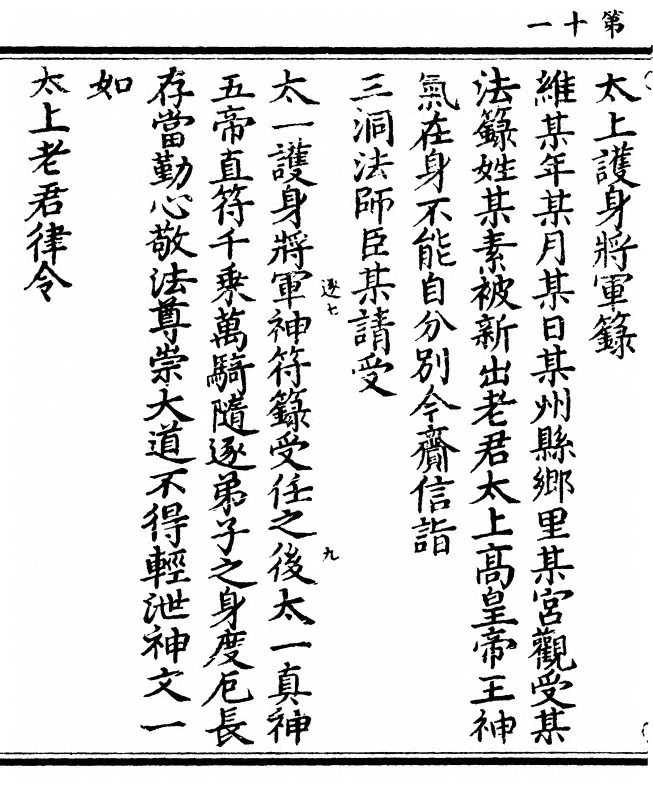 第十一
太上護身將軍籙
維某年某月某日某州縣鄉里某宮觀受某
法籙姓某素被新出老君太上高皇帝王神
氣在身不能自分別今齎信詣
三洞法師臣某請受
逐七 九
太一護身將軍神符籙受任之後太一真神
五帝直符千乘萬騎隨逐弟子之身度厄長
存當勤心敬法尊崇大道不得輕泄神文一
如
太上老君律令